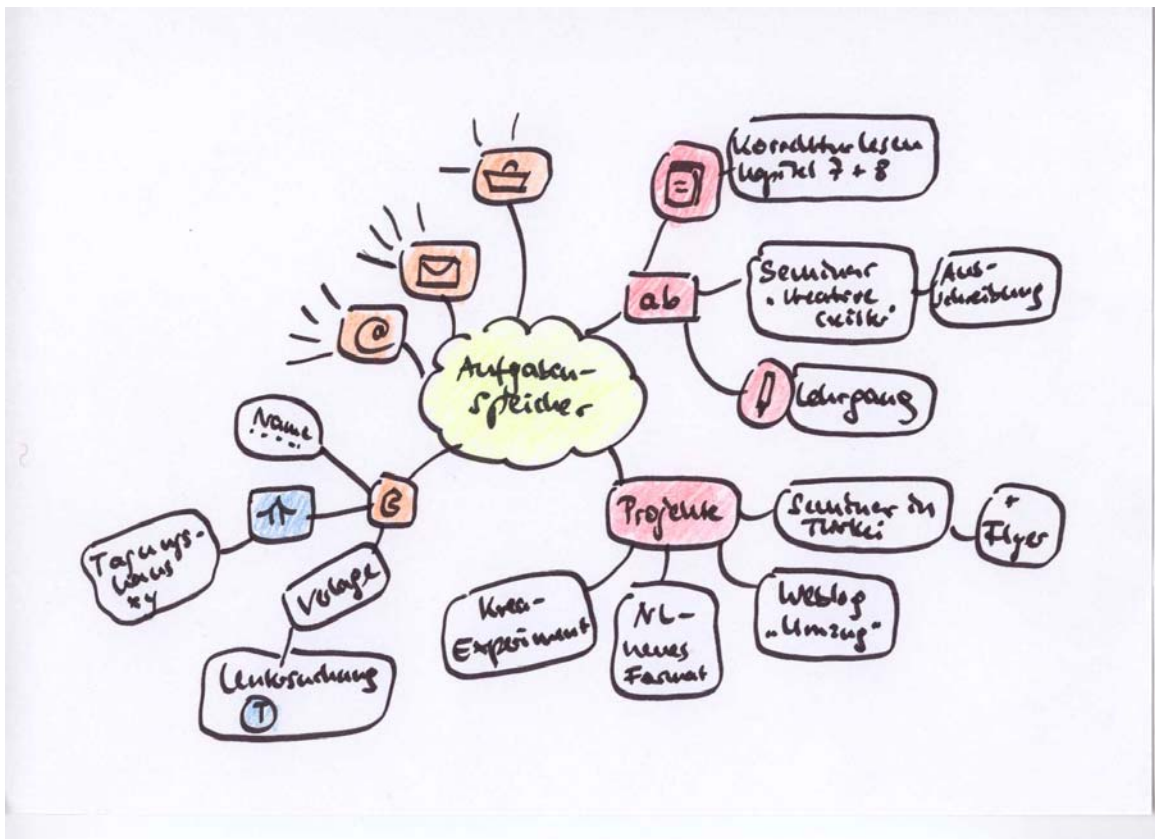 Aufgaben-
speicher
Korrektur lesen
Kapitel 7 + 8
ab
Seminar
"Kreative
Aus-
schreibung
Lehrgang
Projekte
Seminar in
Türkei
+
Flyer
Weblog
"Umzug"
NL-
neues
Format
Krea-
Experiment
@
Name
Tagungs-
haus
xy
Verlage
Untersuchung
T